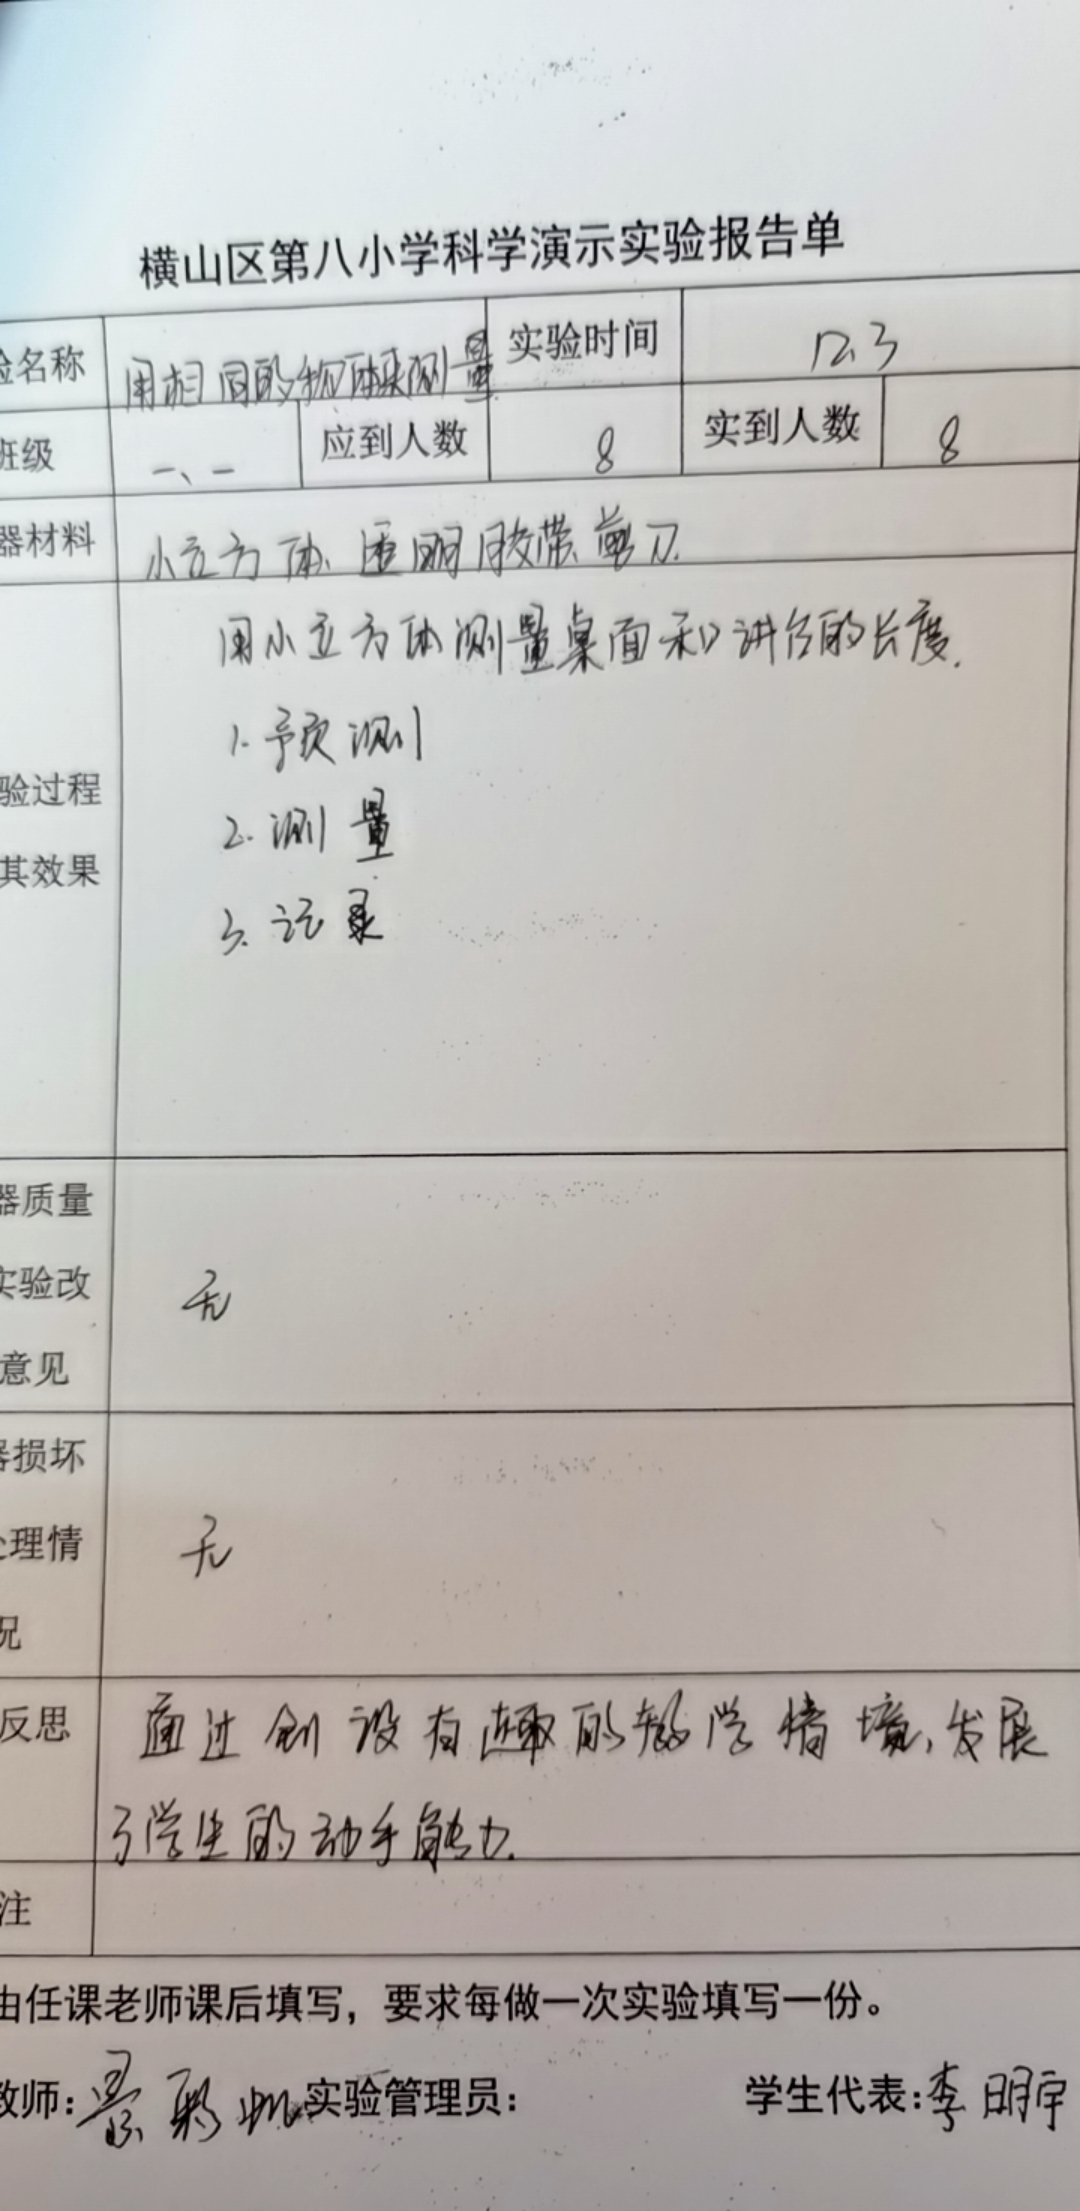 横山区第八小学科学演示实验报告单
验名称 用相同的物体来测量 实验时间 12.3
班级 一、一 应到人数 8 实到人数 8
器材料 小立方体 透明胶带 剪刀.
用小立方体测量桌面和讲台的长度.
1. 预测
验过程
2. 测量
其效果
3. 记录
器质量
实验改 无
意见
器损坏
处理情 无
况
反思 通过创设有趣的教学情境,发展
了学生的动手能力.
注
由任课老师课后填写，要求每做一次实验填写一份。
教师: 景彩 实验管理员: 学生代表: 李明宇